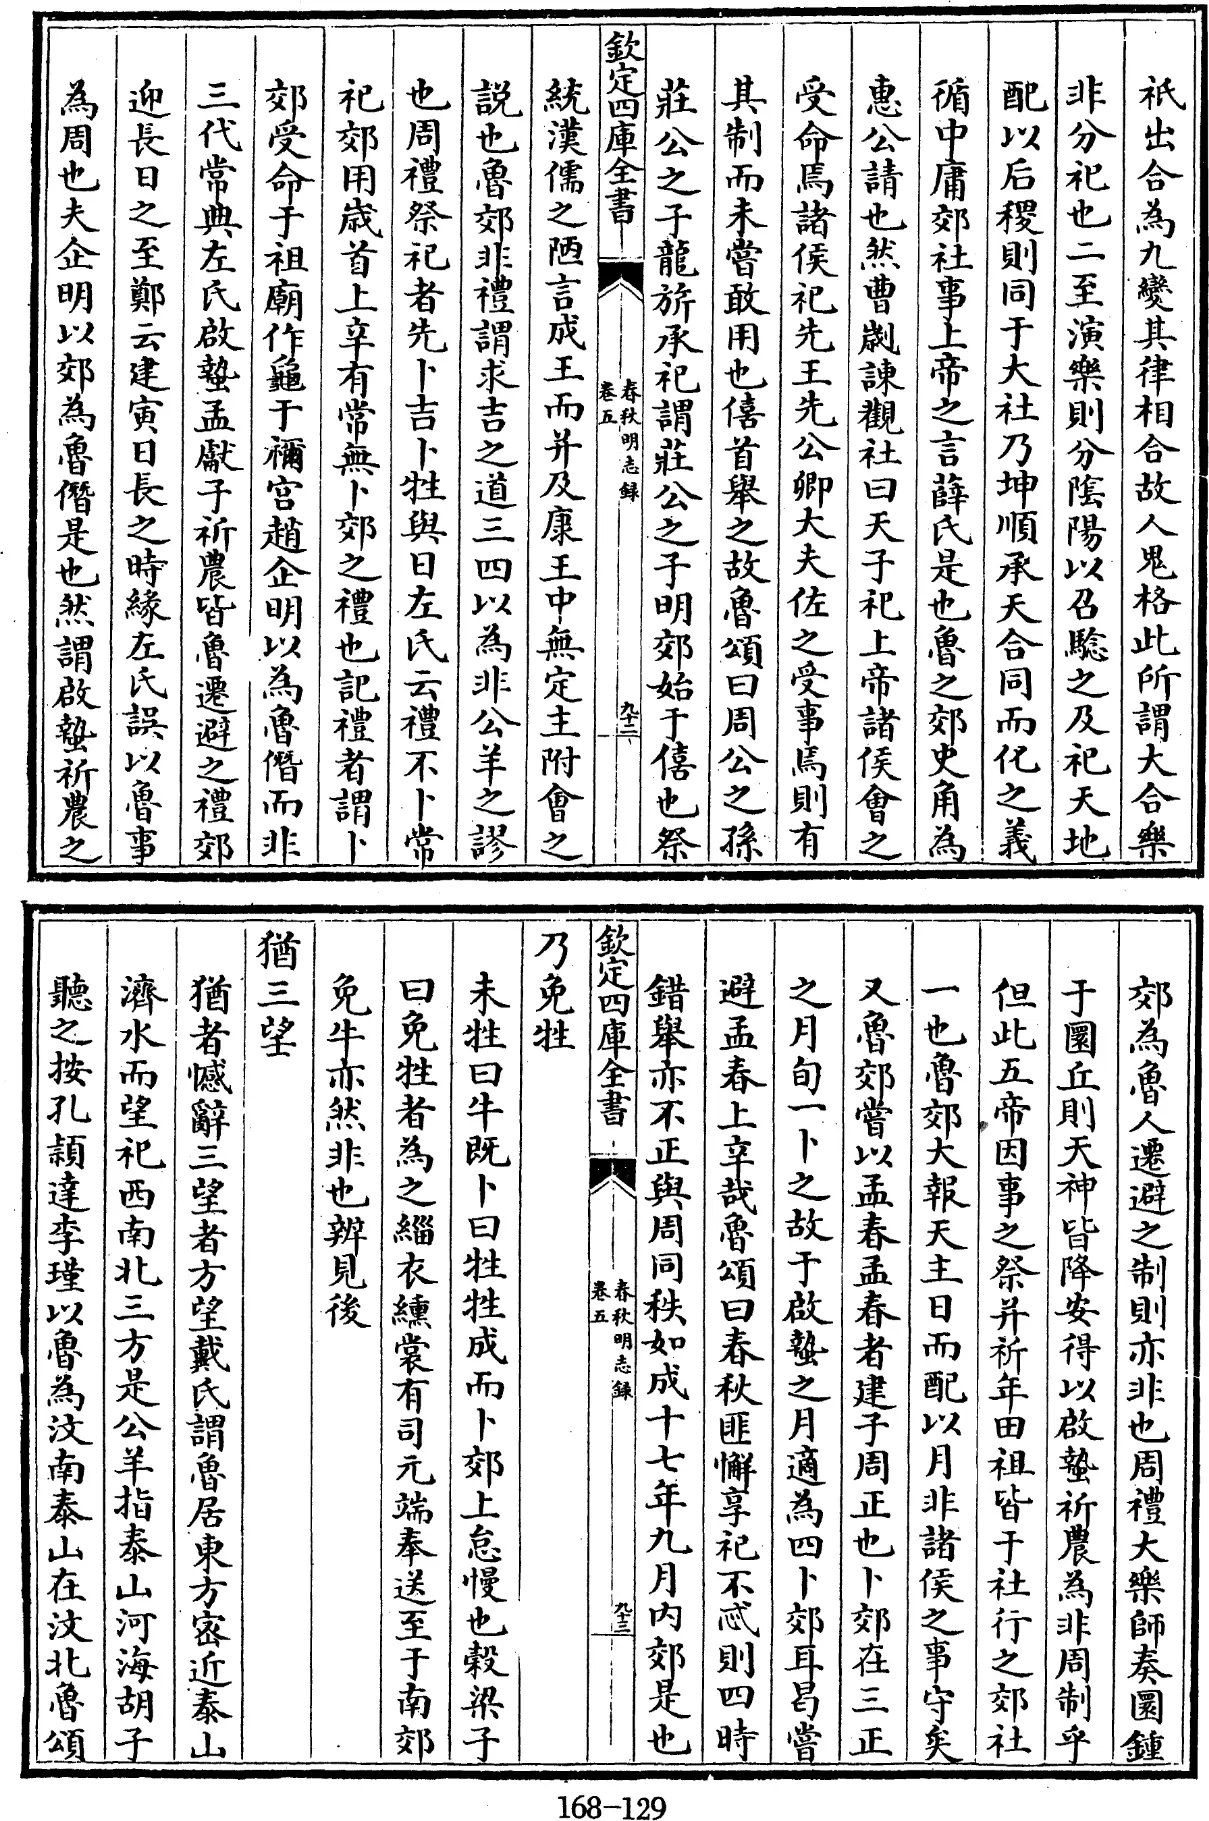 祇出合為九變其律相合故人鬼格此所謂大合樂
非分祀也二至演樂則分隂陽以召驗之及祀天地
配以后稷則同于大社乃坤順承天合同而化之義
循中庸郊社事上帝之言薛氏是也魯之郊史角為
惠公請也然曹劌諫觀社曰天子祀上帝諸侯會之
受命焉諸侯祀先王先公卿大夫佐之受事焉則有
其制而未嘗敢用也僖首舉之故魯頌曰周公之孫
莊公之子龍旂承祀謂莊公之子明郊始于僖也祭
欽定四庫全書
春秋明志録
卷五
九十二
統漢儒之陋言成王而并及康王中無定主附會之
説也魯郊非禮謂求吉之道三四以為非公羊之謬
也周禮祭祀者先卜吉卜牲與日左氏云禮不卜常
祀郊用歲首上辛有常無卜郊之禮也記禮者謂卜
郊受命于祖廟作龜于禰宮趙企明以為魯僭而非
三代常典左氏啟蟄孟獻子祈農皆魯遷避之禮郊
迎長日之至鄭云建寅日長之時緣左氏誤以魯事
為周也夫企明以郊為魯僭是也然謂啟蟄祈農之
郊為魯人遷避之制則亦非也周禮大樂師奏圜鍾
于圜丘則天神皆降安得以啟蟄祈農為非周制乎
但此五帝因事之祭并祈年田祖皆于社行之郊社
一也魯郊大報天主日而配以月非諸侯之事守矣
又魯郊嘗以孟春孟春者建子周正也卜郊在三正
之月旬一卜之故于啟蟄之月適為四卜郊耳曷嘗
避孟春上辛哉魯頌曰春秋匪懈享祀不忒則四時
錯舉亦不正與周同秩如成十七年九月内郊是也
欽定四庫全書
春秋明志録
卷五
九十三
乃免牲
未牲曰牛既卜曰牲牲成而卜郊上怠慢也榖梁子
曰免牲者為之緇衣纁裳有司元端奉送至于南郊
免牛亦然非也辨見後
猶三望
猶者憾辭三望者方望戴氏謂魯居東方密近泰山
濟水而望祀西南北三方是公羊指泰山河海胡子
聽之按孔頴達李瑾以魯為汶南泰山在汶北魯頌
168-129